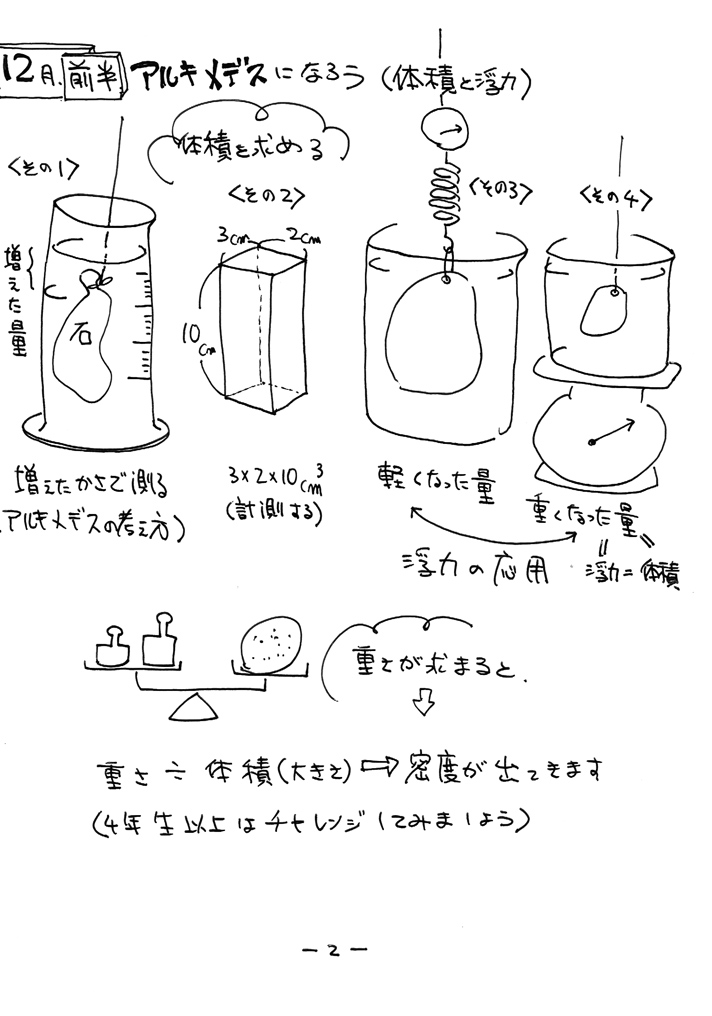 12月 前半 アルキメデスになろう (体積と浮力)
体積を求める
〈その1〉
増えた量
石
増えたかさで測る
(アルキメデスの考え方)
〈その2〉
3cm 2cm
10cm
3×2×10cm³
(計測する)
〈その3〉
軽くなった量
〈その4〉
重くなった量
浮力の応用
=
=
浮力=体積
重さが求まると.
重さ÷体積(大きさ)⇨密度が出てきます
(4年生以上はチャレンジしてみましょう)
-2-